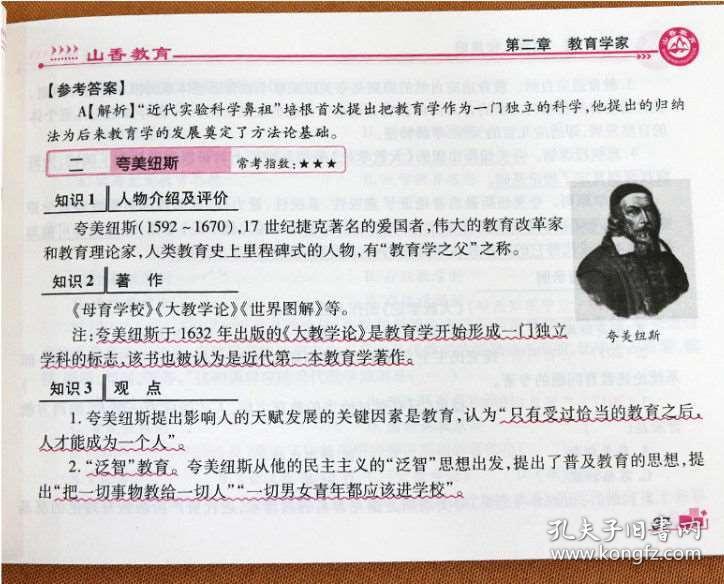 山香教育
第二章 教育学家
【参考答案】
A【解析】“近代实验科学鼻祖”培根首次提出把教育学作为一门独立的科学,他提出的归纳
法为后来教育学的发展奠定了方法论基础。
二 夸美纽斯 常考指数:★★★
知识1 人物介绍及评价
夸美纽斯(1592~1670),17世纪捷克著名的爱国者,伟大的教育改革家
和教育理论家,人类教育史上里程碑式的人物,有“教育学之父”之称。
知识2 著 作
《母育学校》《大教学论》《世界图解》等。
注:夸美纽斯于1632年出版的《大教学论》是教育学开始形成一门独立
学科的标志,该书也被认为是近代第一本教育学著作。
夸美纽斯
知识3 观 点
1.夸美纽斯提出影响人的天赋发展的关键因素是教育,认为“只有受过恰当的教育之后,
人才能成为一个人”。
2.“泛智”教育。夸美纽斯从他的民主主义的“泛智”思想出发,提出了普及教育的思想,提
出“把一切事物教给一切人”“一切男女青年都应该进学校”。
37
孔夫子旧书网
www.kongfz.com